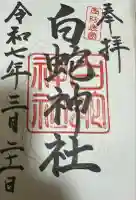 奉拝
白蛇神社
令和七年三月二十一日